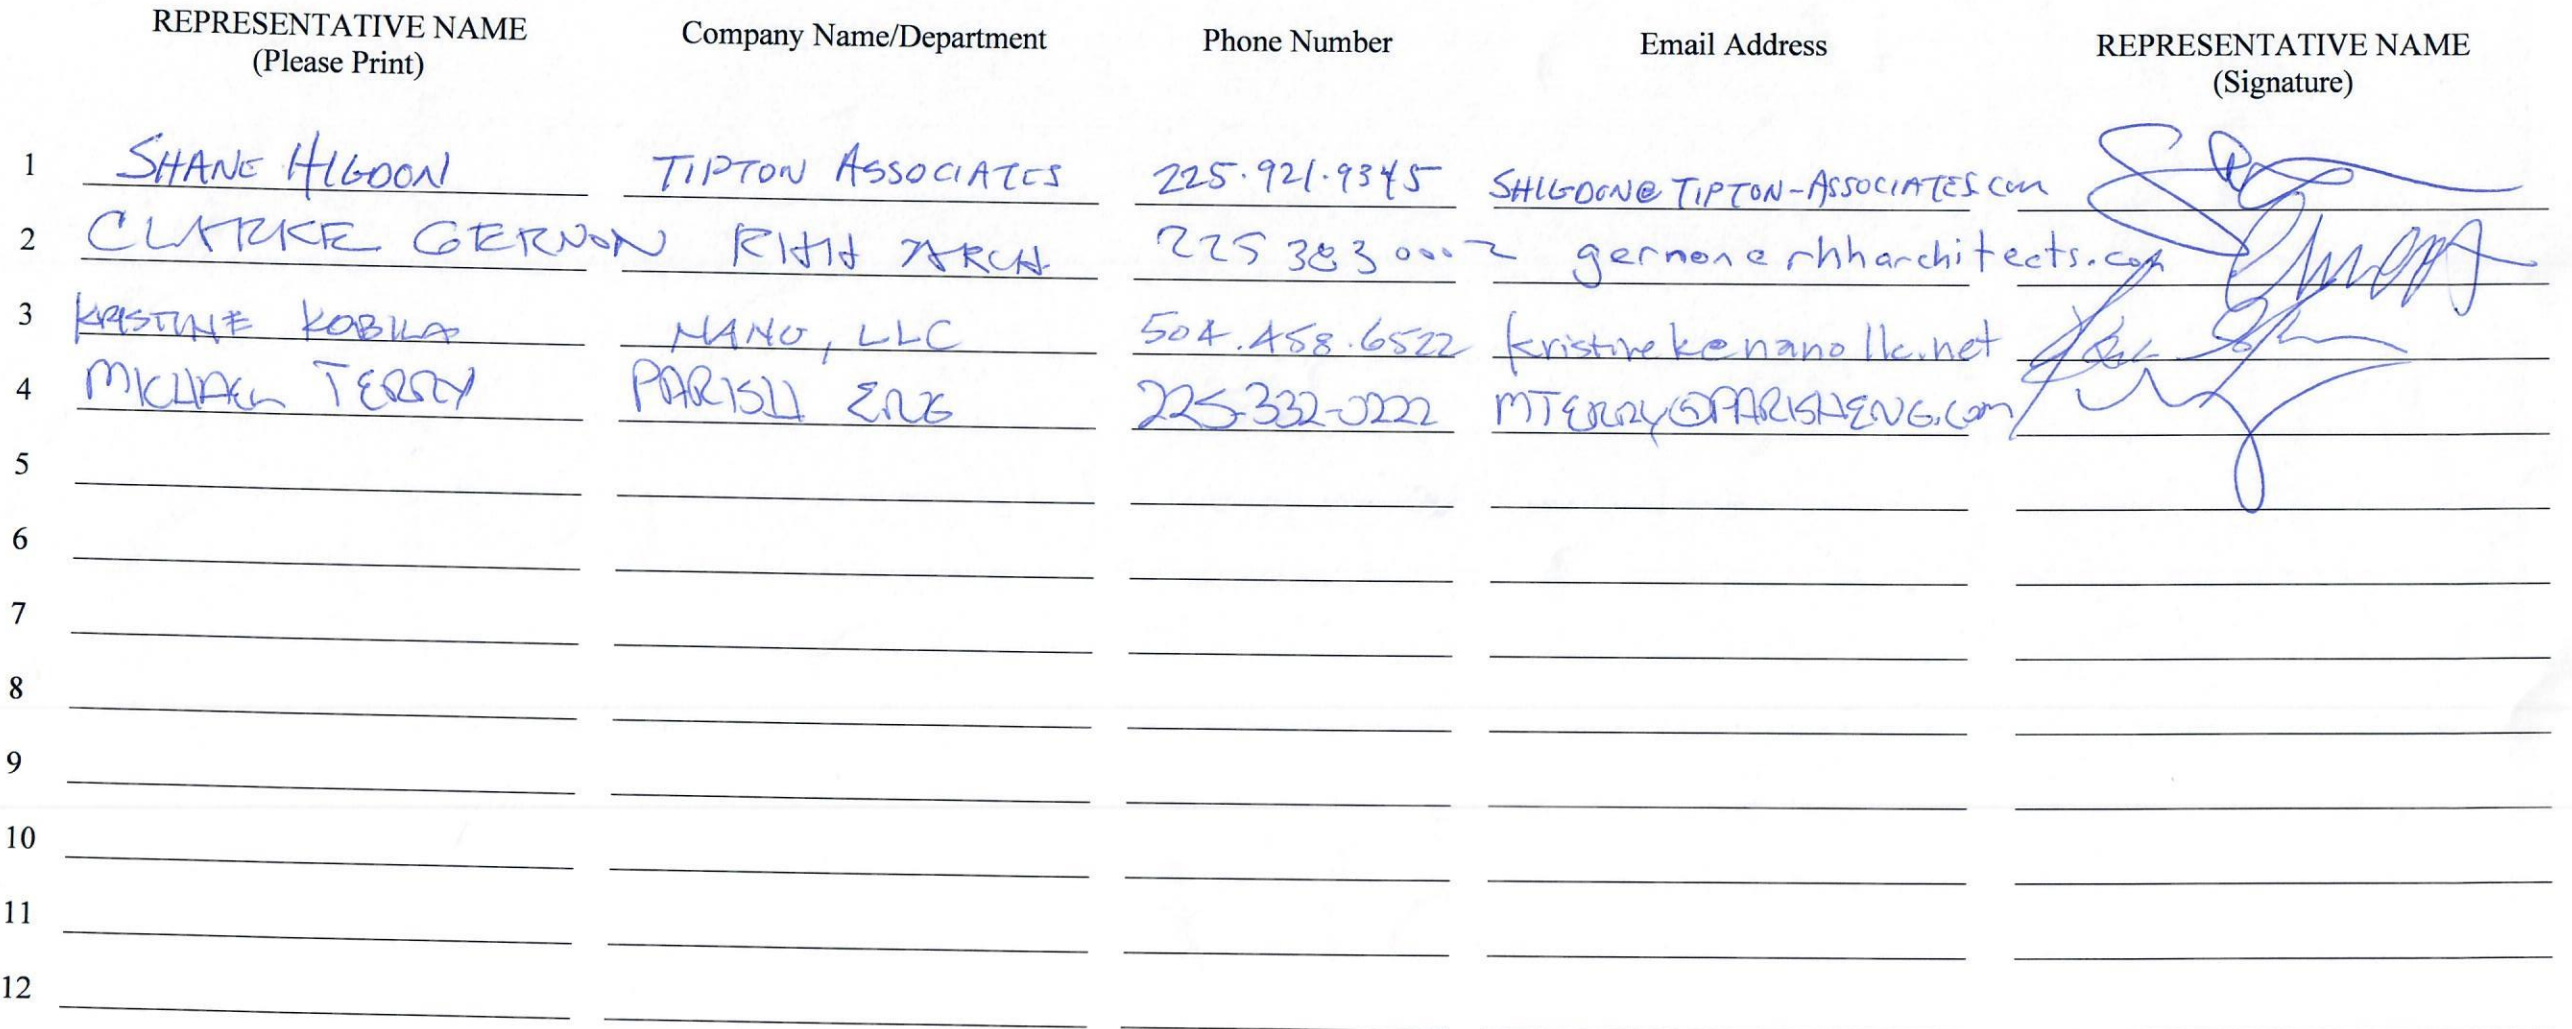 REPRESENTATIVE NAME Company Name/Department Phone Number Email Address REPRESENTATIVE NAME
(Please Print) (Signature)
1 SHANE HIGDON TIPTON ASSOCIATES 225.921.9345 SHIGDON@TIPTON-ASSOCIATES.COM
2 CLARKE GERNON RHH ARCH. 225 383 0002 gernon@rhharchitects.com
3 KRISTINE KOBILA NANO, LLC 504.458.6522 kristinek@nanollc.net
4 MICHAEL TERRY PARISH ENG 225-332-0222 MTERRY@PARISHENG.COM
5
6
7
8
9
10
11
12